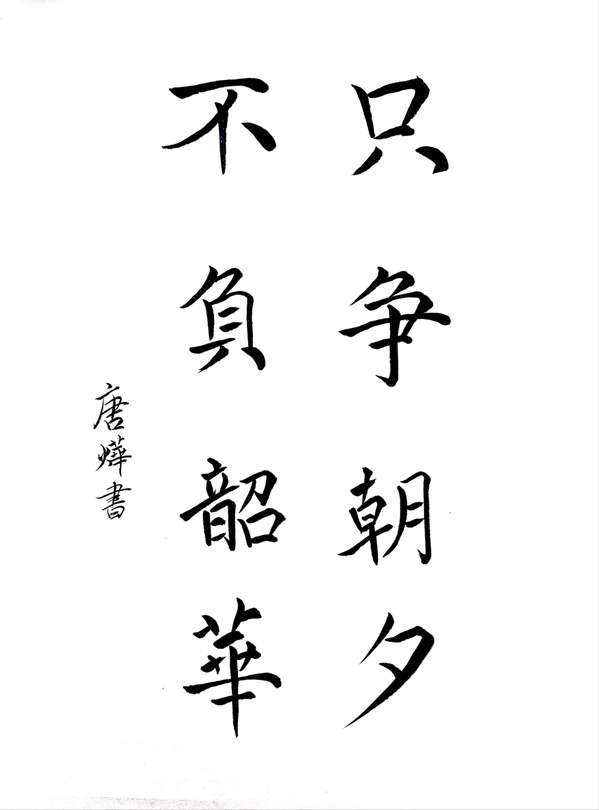 只争朝夕
不負韶華
唐燁書